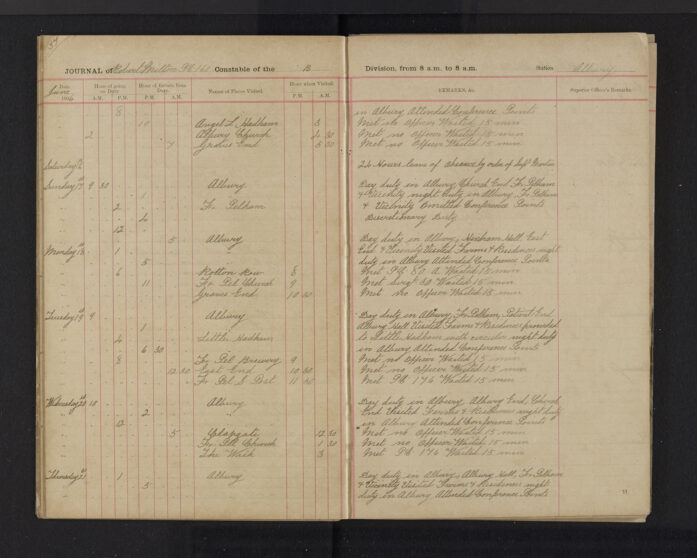 JOURNAL of Edward Mutton PC 160 Constable of the B
Division, from 8 a.m. to 8 a.m. Station Albury
Date Hour of going on Duty Hour of Return from Duty Name of Places Visited Hour when Visited
REMARKS, &c. Superior Officer's Remarks
June A.M. P.M. P.M. A.M. P.M. A.M.
8 in Albury Attended Conference Points
10 Angel L Hadham 3 Met no Officer Waited 15 min
2 Albury Church 4 30 Met no Officer Waited 15 min
7 Gravis End 5 30 Met no Officer Waited 15 min
Saturday 24 Hours leave of absence by order of
Sunday 9 30 Albury Day duty in Albury Church End Fx Pelham
1 & Vicinity night Duty in Albury, Fx Pelham
2 Fx Pelham & Vicinity Omitted Conference Points
4 Discretionary Duty
12
5 Albury Day duty in Albury, Hadham Hall, East
Monday 18 1 End & Vicinity Visited Farms & Residences night
5 duty in Albury Attended Conference Points
6 Rotton Row 8 Met PC 80 A Waited 15 min
11 Fx Pel Church 9 Met 50 Waited 15 min
Graves End 10 Met no Officer Waited 15 min
Tuesday 19 9 Albury Day duty in Albury, Fx Pelham, Patient End
1 Albury Hall Visited Farms & Residences proceeded
4 Little Hadham to Little Hadham night duty
6 30 in Albury Attended Conference Points
8 Fx Pel Brewery 9 Met no Officer Waited 15 min
12 30 East End 10 30 Met no Officer Waited 15 min
Fx Pel S Post 11 Met PC 176 Waited 15 min
Wednesday 20 10 Albury Day duty in Albury, Albury End, Church
2 End Visited Farms & Residences night duty
12 in Albury Attended Conference Points
5 Clapgate 12 30 Met no Officer Waited 15 min
Fx Pell Church 1 Met no Officer Waited 15 min
The Wash 3 Met PC 176 Waited 15 min
Thursday 21 1 Albury Day duty in Albury, Albury Hall, Fx Pelham
5 & Vicinity Visited Farms & Residences night
duty in Albury Attended Conference Points
11